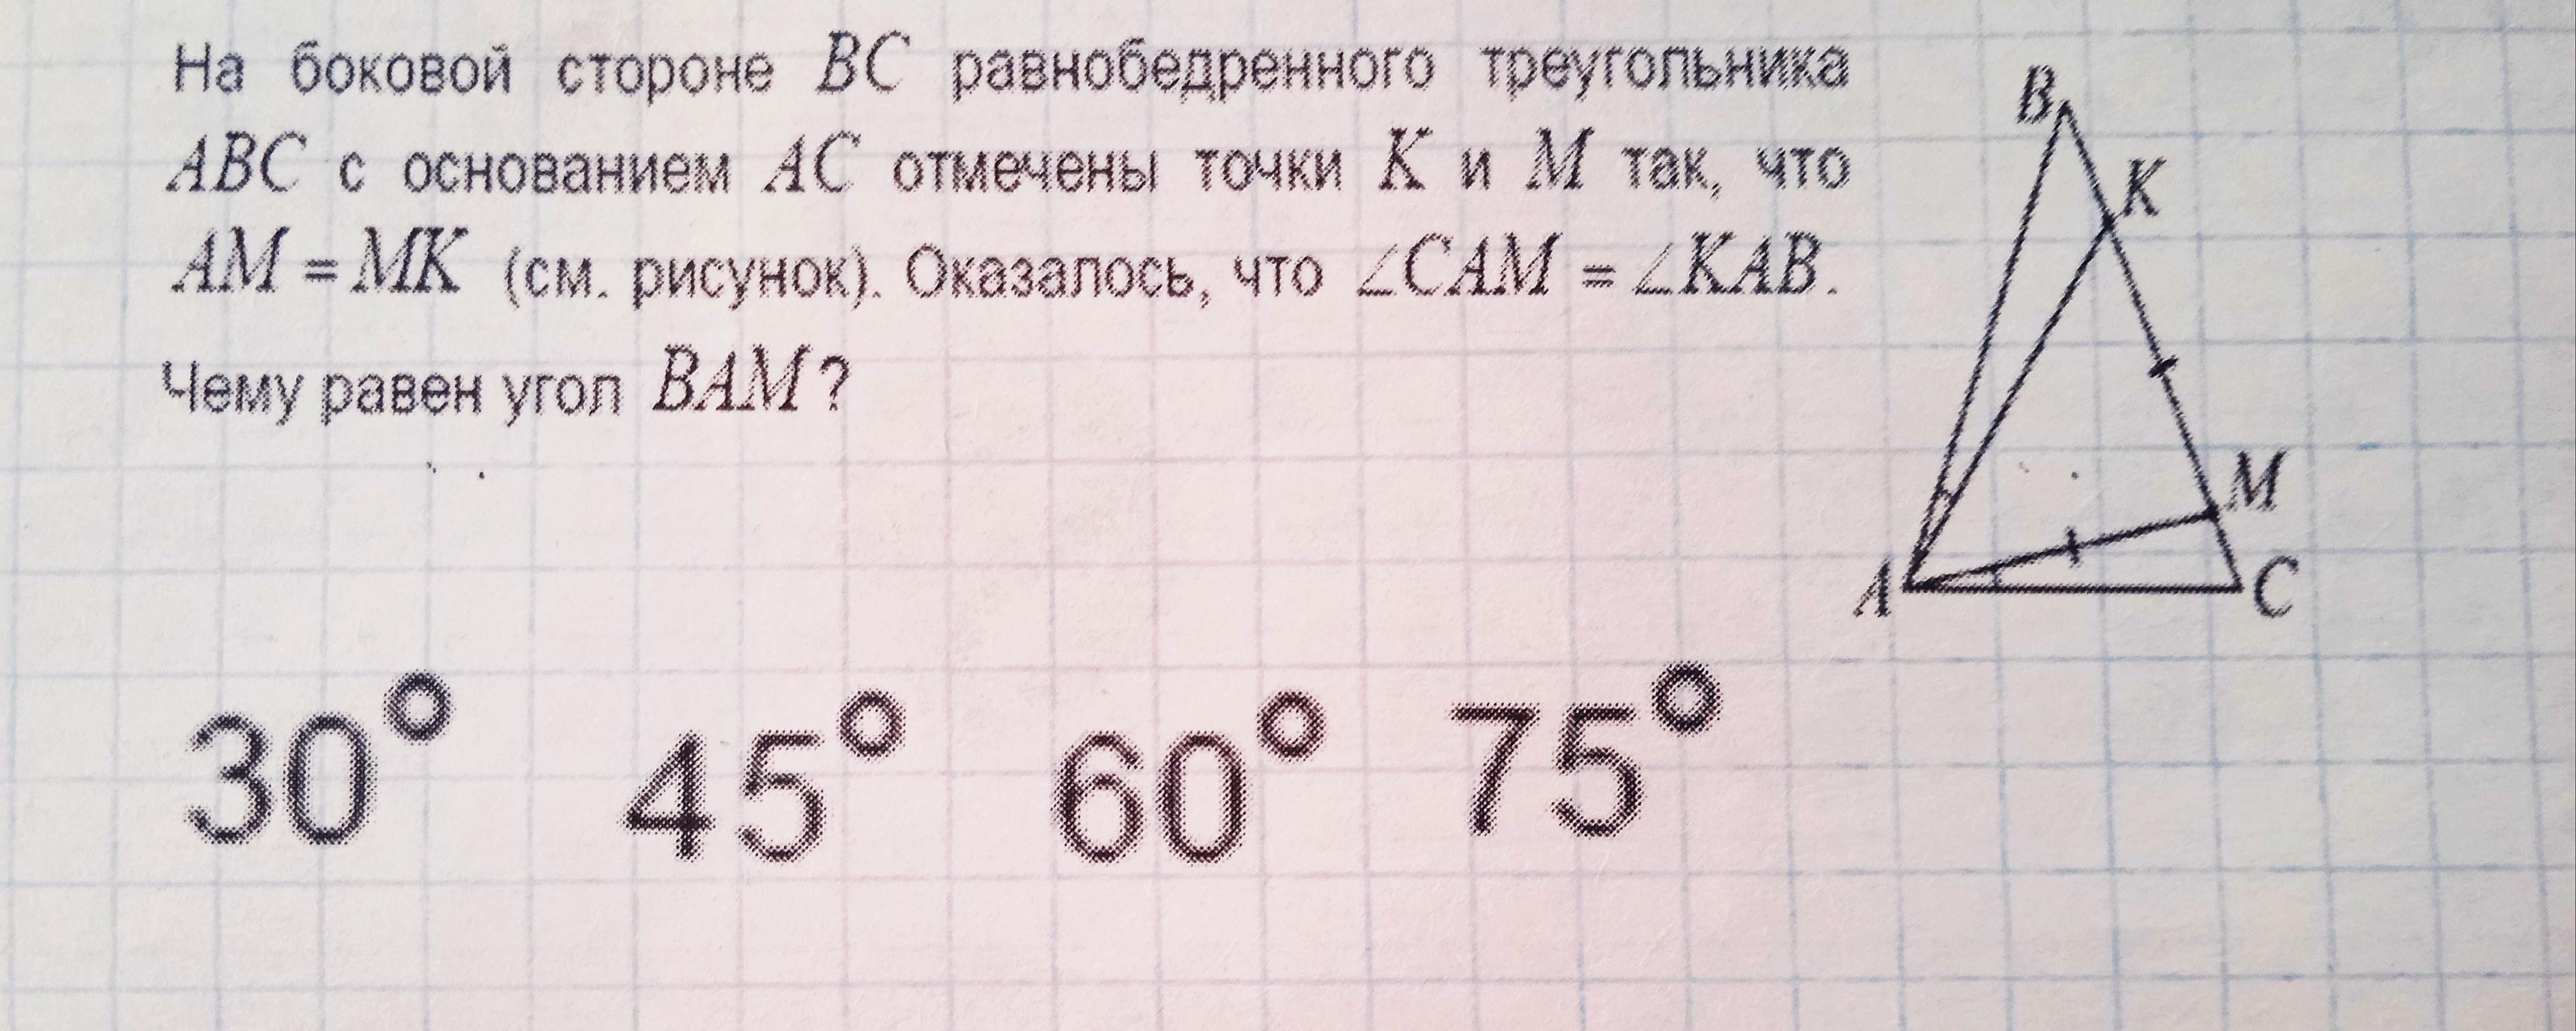 На боковой стороне BC равнобедренного треугольника
ABC с основанием AC отмечены точки K и M так, что
AM = MK (см. рисунок). Оказалось, что ∠CAM = ∠KAB.
Чему равен угол BAM?
B
K
M
A
C
30° 45° 60° 75°